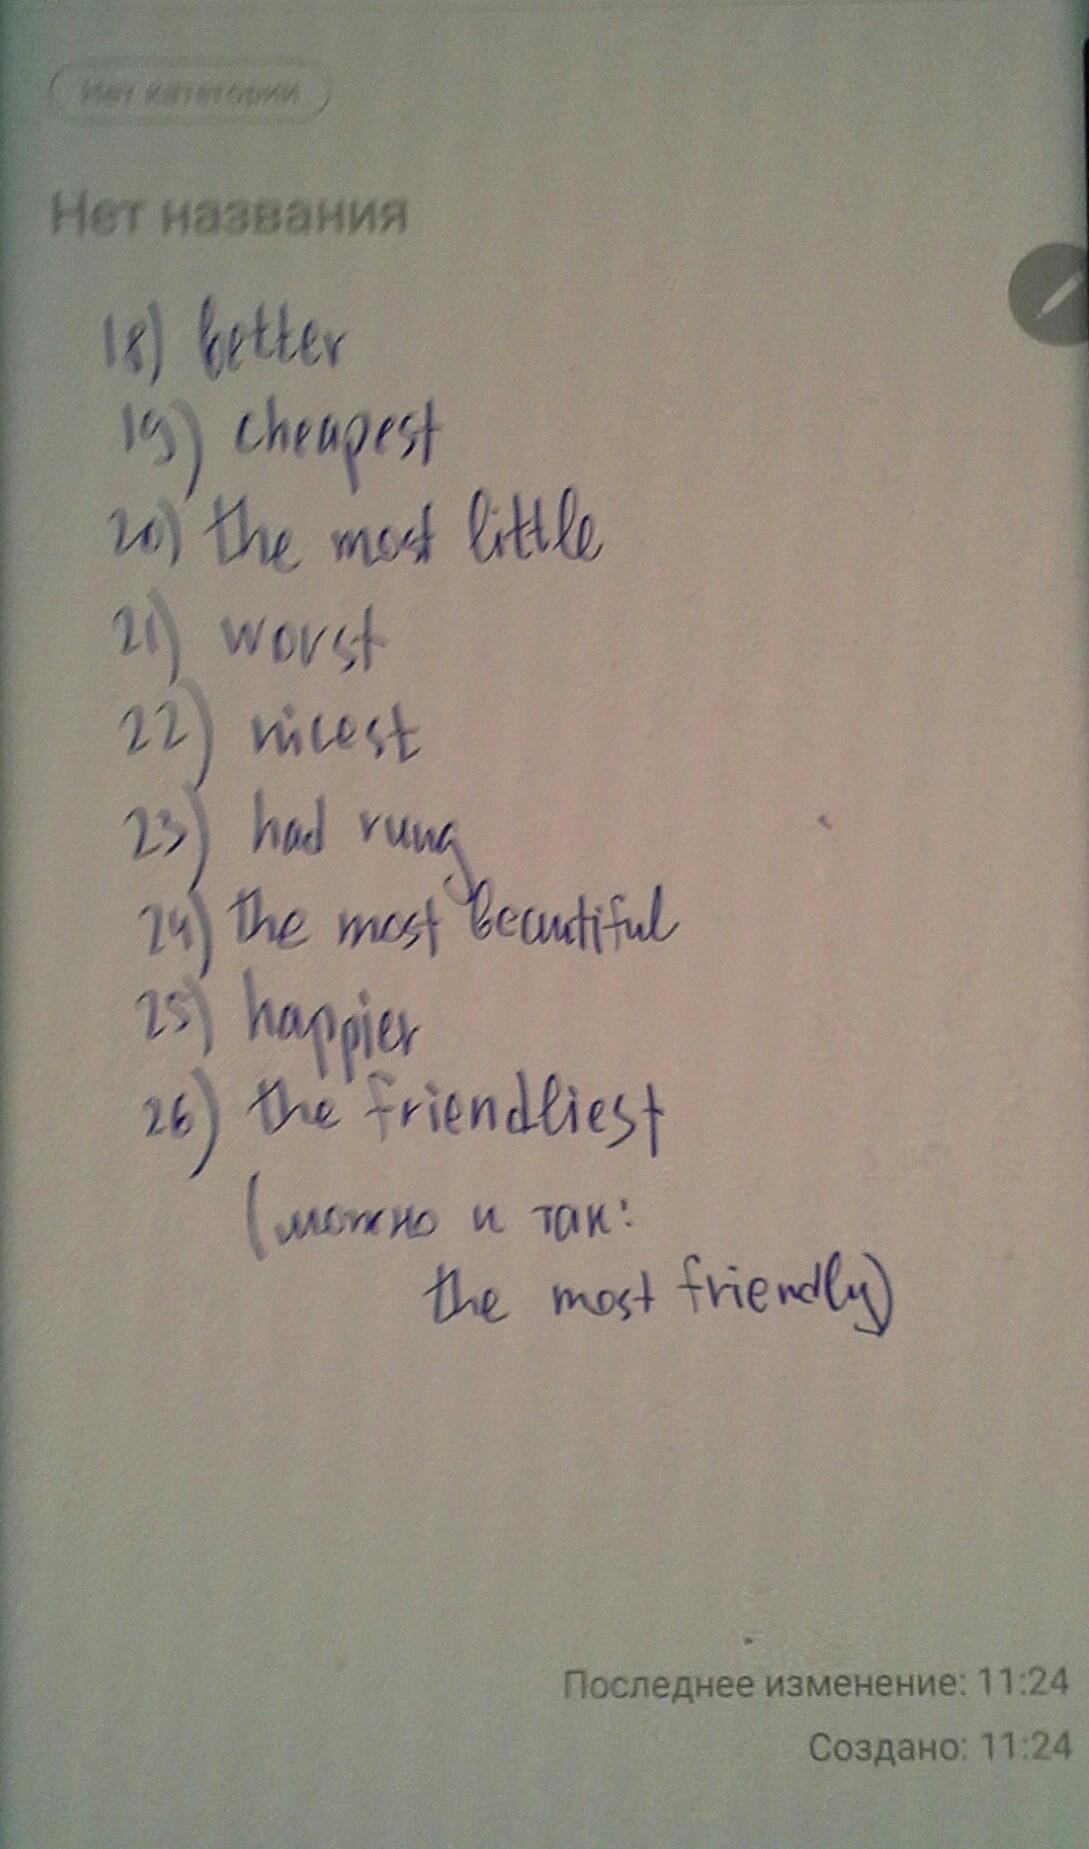 Нет категории
Нет названия
18) better
19) cheapest
20) the most little
21) worst
22) nicest
23) had rung
24) the most beautiful
25) happier
26) the friendliest
(можно и так:
the most friendly)
Последнее изменение: 11:24
Создано: 11:24